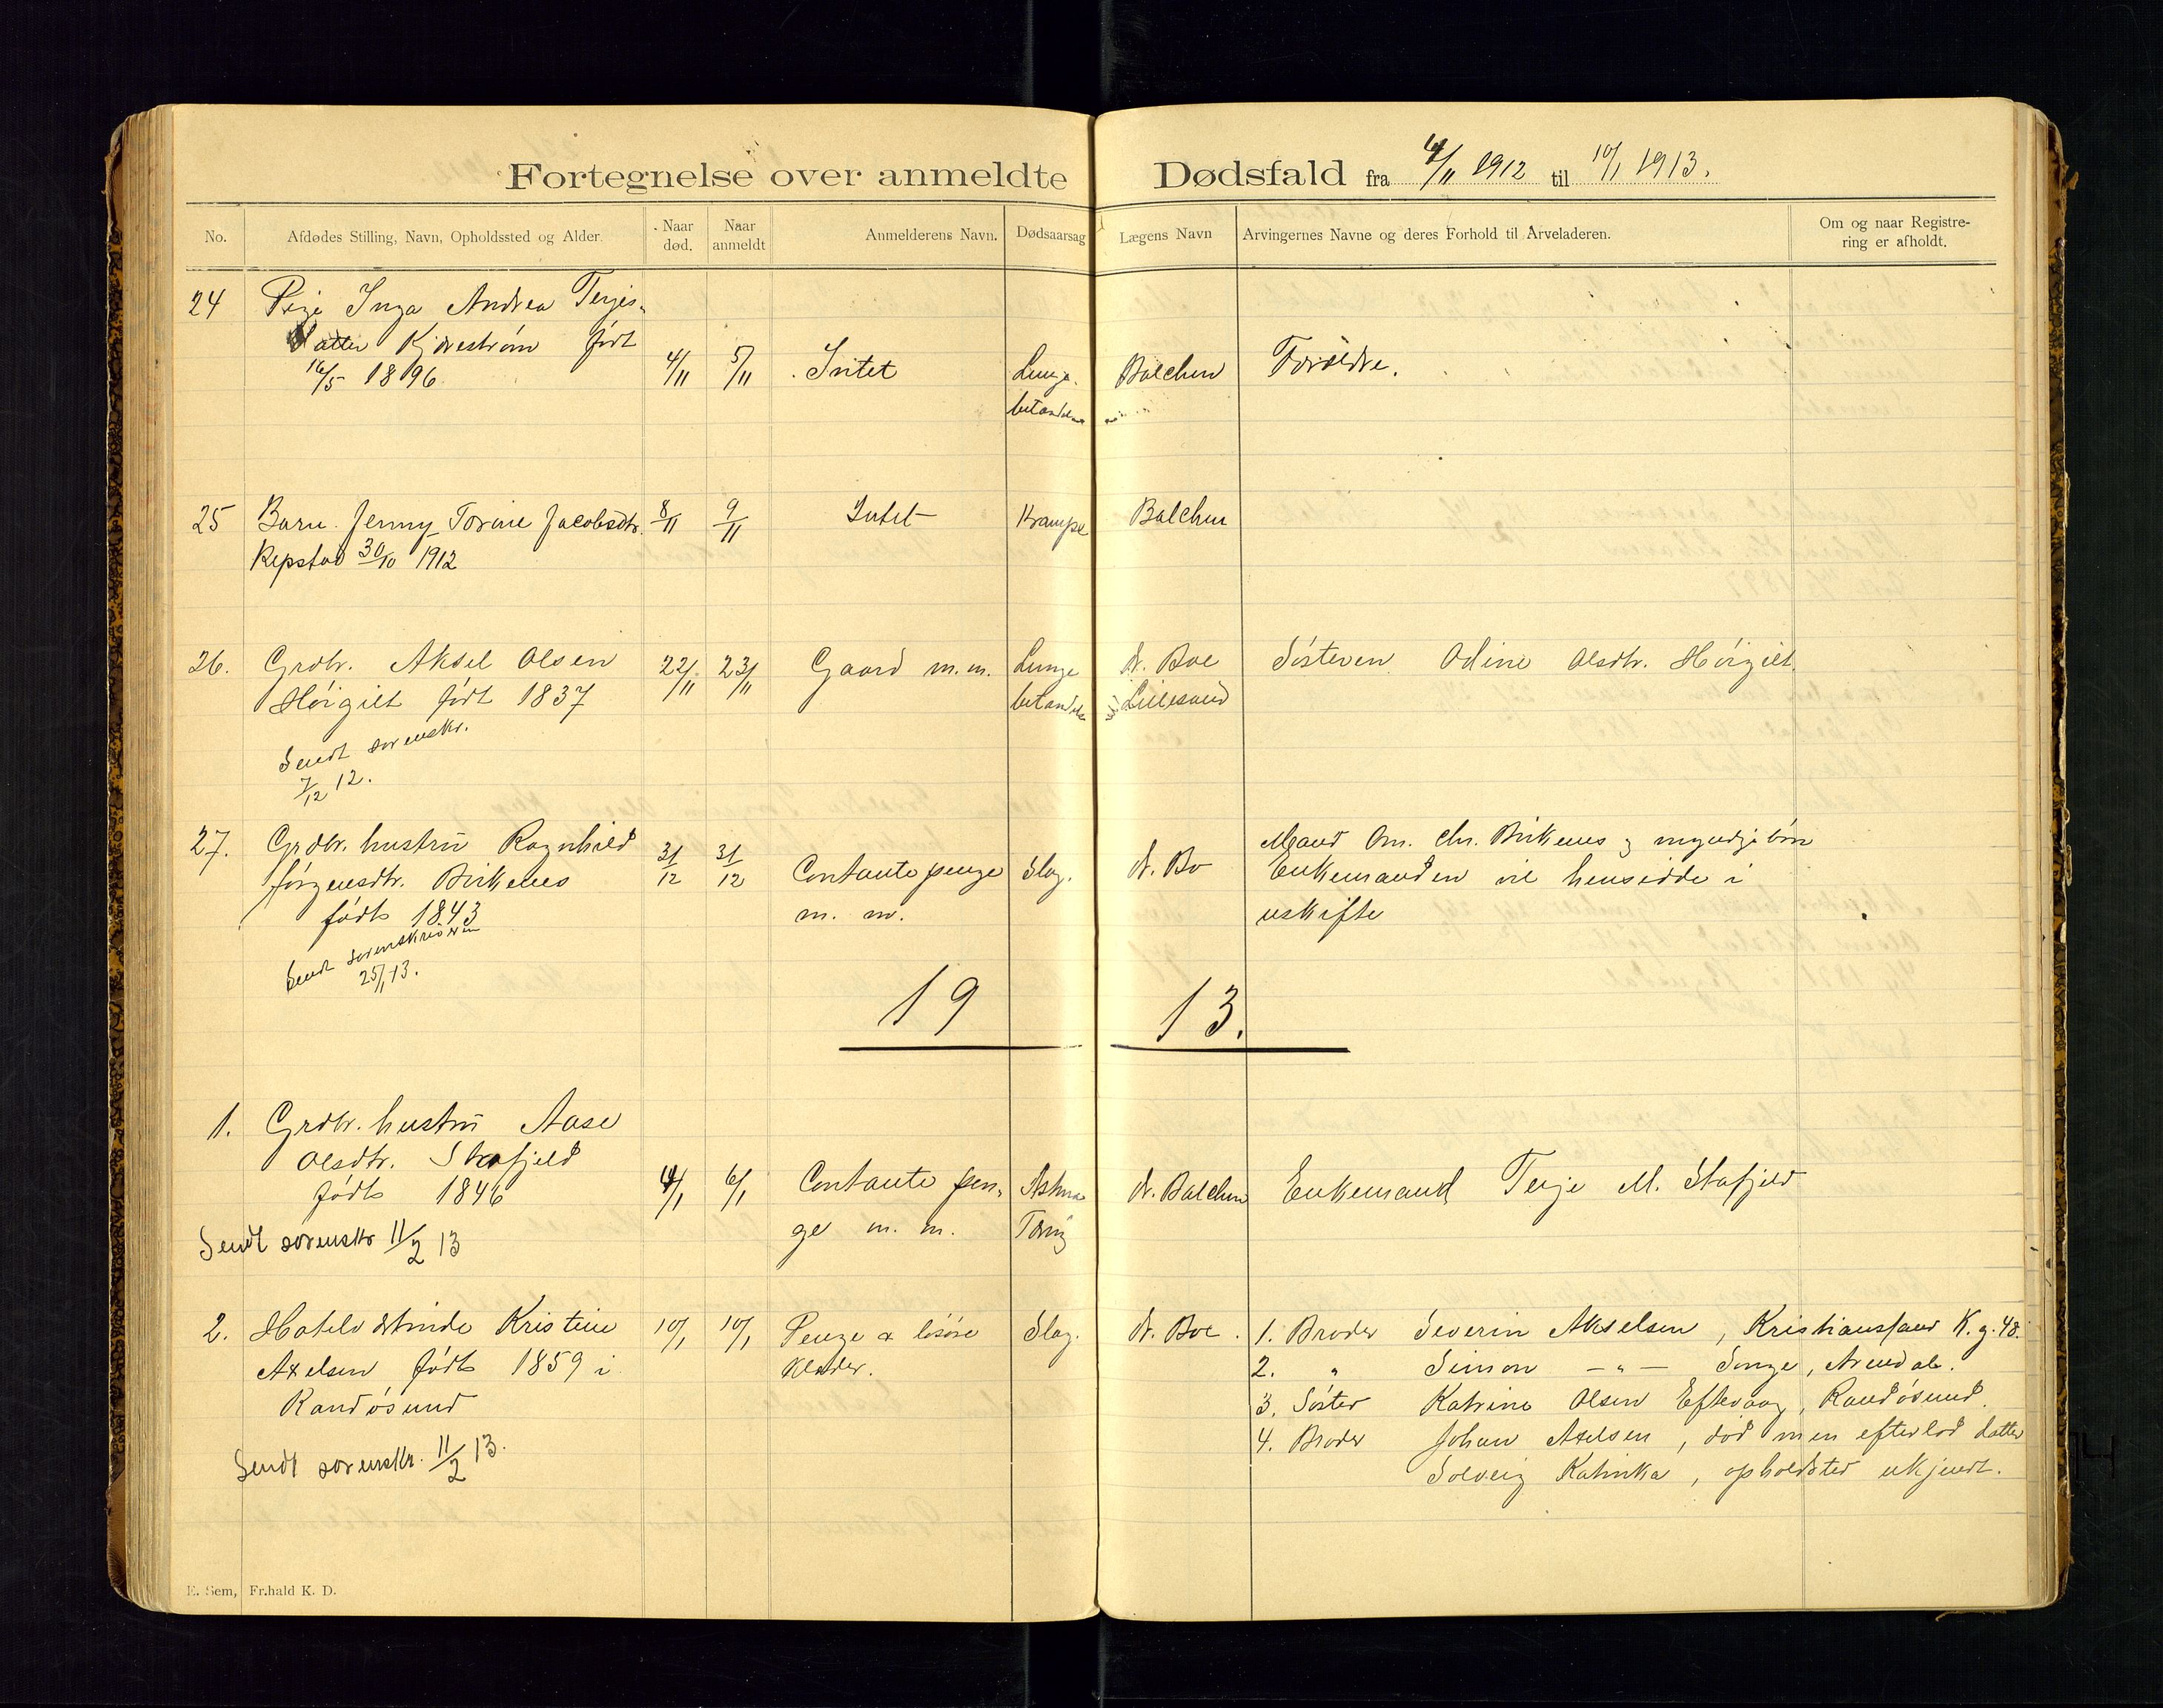 Fortegnelse over anmeldte Dødsfald fra 4/11 1912 til 10/1 1913.
No. Afdødes Stilling, Navn, Opholdssted og Alder. Naar død. Naar anmeldt Anmelderens Navn. Dødsaarsag Lægens Navn Arvingernes Navne og deres Forhold til Arveladeren. Om og naar Registrering er afholdt.
24 Pige Inga Andrea Terjes-
datter Kjærestrøm født
16/5 1896 4/11 5/11 Intet Lunge- Balchen Forældre.
betændelse
25 Barn Jenny Torine Jacobsdtr. 8/11 9/11 Intet Krampe Balchen
Repstad 30/10 1912
26. Grdbr. Aksel Olsen 22/11 23/11 Gaard m.m. Lunge dr. Boe Søsteren Odine Olsdtr. Høigilt.
Høigilt født 1837 betændelse Lillesand
Sendt sorenskr.
7/12 12.
27. Grdbr. hustru Ragnhild 31/12 31/12 Contante penge Slag. dr. Bo Mand On. Chr. Birkenes og myndige børn
Jørgensdtr. Birkenes m. m. Enkemanden vil hensidde i
født 1843 uskifte
Sendt sorenskriveren
25/1 13.
19 13.
1. Grdbr. hustru Aase
Olsdtr. Stafjeld
født 1846 4/1 6/1 Contante pen- Astma dr. Balchen Enkemand Terje M. Stafjeld
ge m. m. Tæring
Sendt sorenskr 11/2 13
2. Hotelværtinde Kristine 10/1 10/1 Penge & løsøre Slag. dr. Boe. 1. Broder Severin Akselsen, Kristianssand K. g. 48.
Axelsen født 1859 i klæder. 2. " Simon — " — Songe, Arendal.
Randøsund 3. Søster Katrine Olsen Eftevaag, Randøsund.
4. Broder Johan Axelsen, død men efterlod datter
Sendt sorenskr. 11/2 13. Solveig Katinka, opholdsted ukjendt.
E. Sem, Fr.hald K. D.